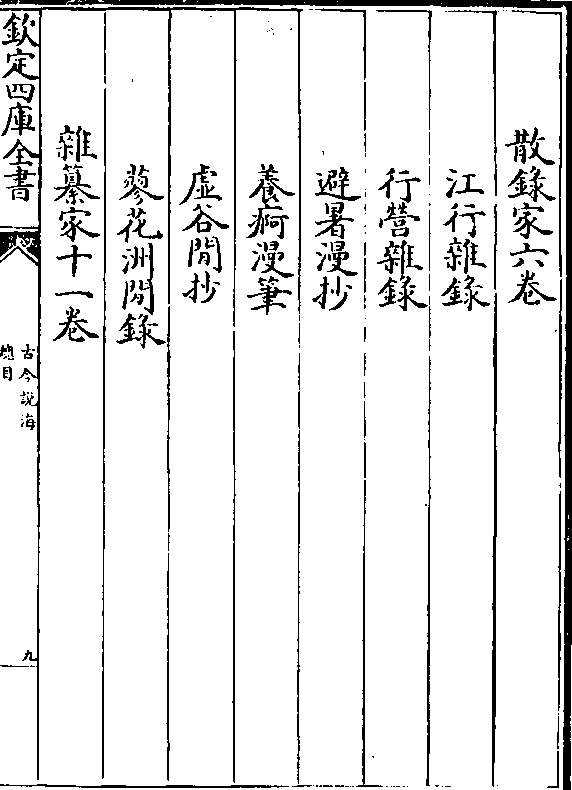 散錄家六卷
江行雜錄
行營雜錄
避暑漫抄
養痾漫筆
虛谷閒抄
蓼花洲閒錄
雜纂家十一卷
欽定四庫全書
古今說海
總目
九